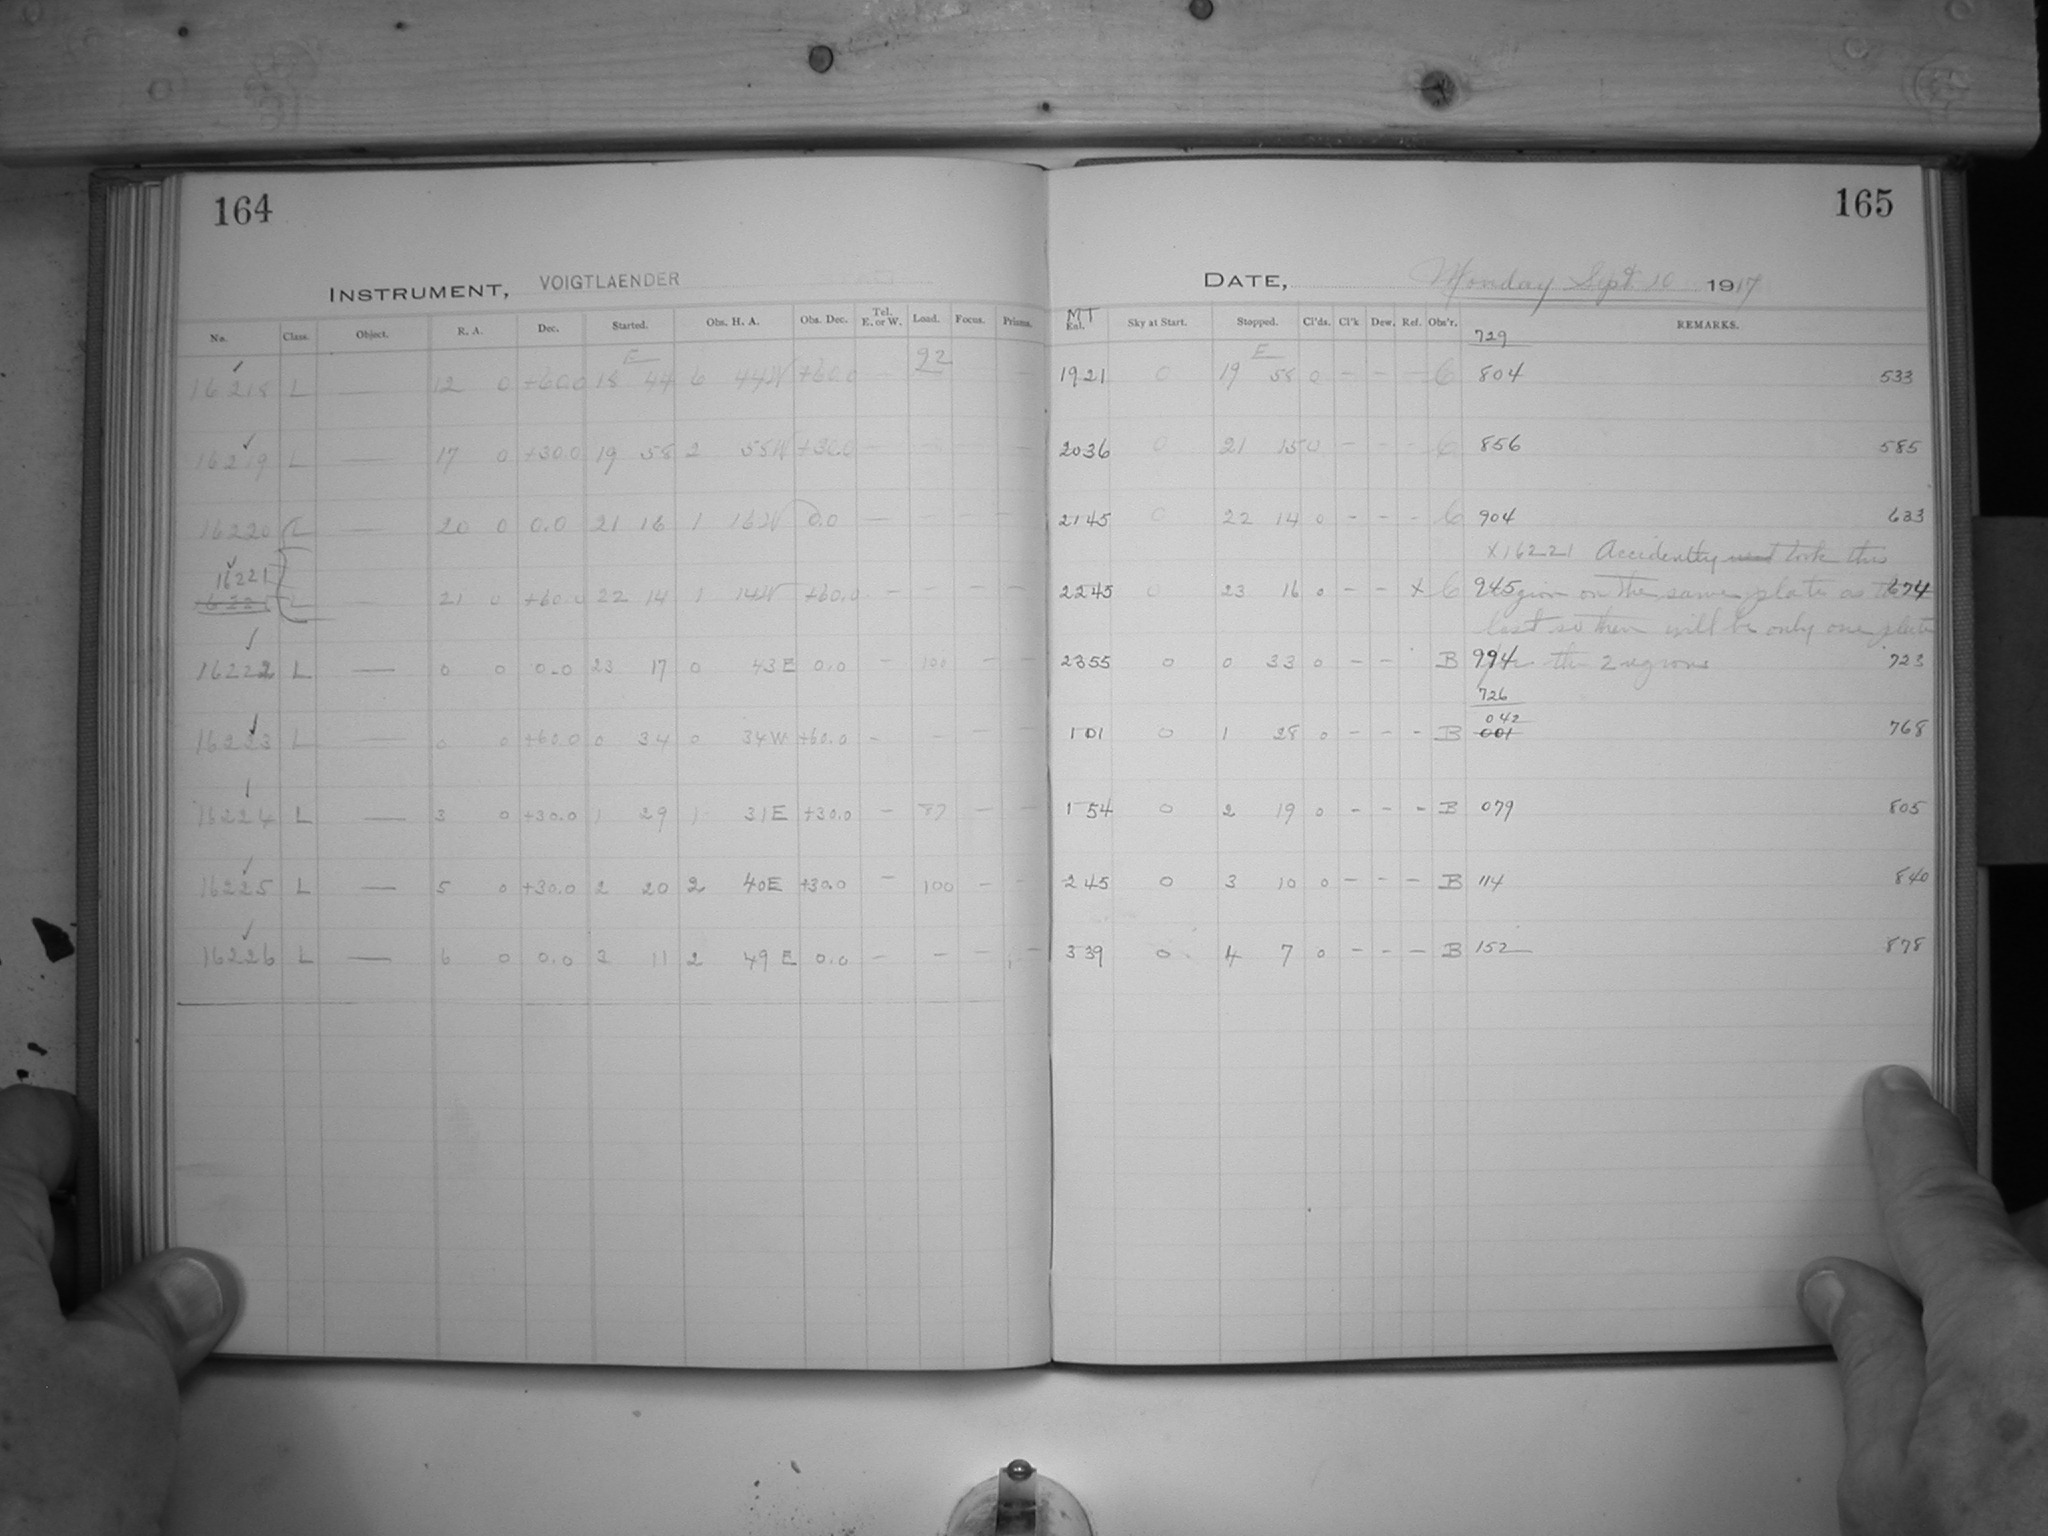 164
INSTRUMENT, VOIGTLAENDER
No. Class. Object. R. A. Dec. Started. Obs. H. A. Obs. Dec. Tel. E. or W. Load. Focus. Prisms.
E 92
16218 L — 12 0 +60.0 18 44 6 44W +60.0 — —
16219 L — 17 0 +30.0 19 58 2 55W +30.0 — — — —
16220 L — 20 0 0.0 21 16 1 16W 0.0 — — — —
16221
16221 L — 21 0 +60.0 22 14 1 14W +60.0 — — — —
16222 L — 0 0 0.0 23 17 0 43E 0.0 — 100 — —
16223 L — 0 0 +60.0 0 34 0 34W +60.0 — — — —
16224 L — 3 0 +30.0 1 29 1 31E +30.0 — 87 — —
16225 L — 5 0 +30.0 2 20 2 40E +30.0 — 100 — —
16226 L — 6 0 0.0 3 11 2 49E 0.0 — — — —
165
DATE, Monday Sept. 10 1917
MT
Exl. Sky at Start. Stopped. Cl'ds. Cl'k Dew. Ref. Obs'r. REMARKS.
E 729
1921 0 19 58 0 - - - C 804 533
2036 0 21 15 0 - - - C 856 585
2145 0 22 14 0 - - - C 904 633
x16221 Accidently took this
2245 0 23 16 0 - - x C 945 region on the same plate as the 674
last so there will be only one plate
2355 0 0 33 0 - - B 994 the 2 regions 723
726
042
1 01 0 1 28 0 - - - B 001 768
1 54 0 2 19 0 - - - B 079 805
2 45 0 3 10 0 - - - B 114 840
3 39 0 4 7 0 - - - B 152 878